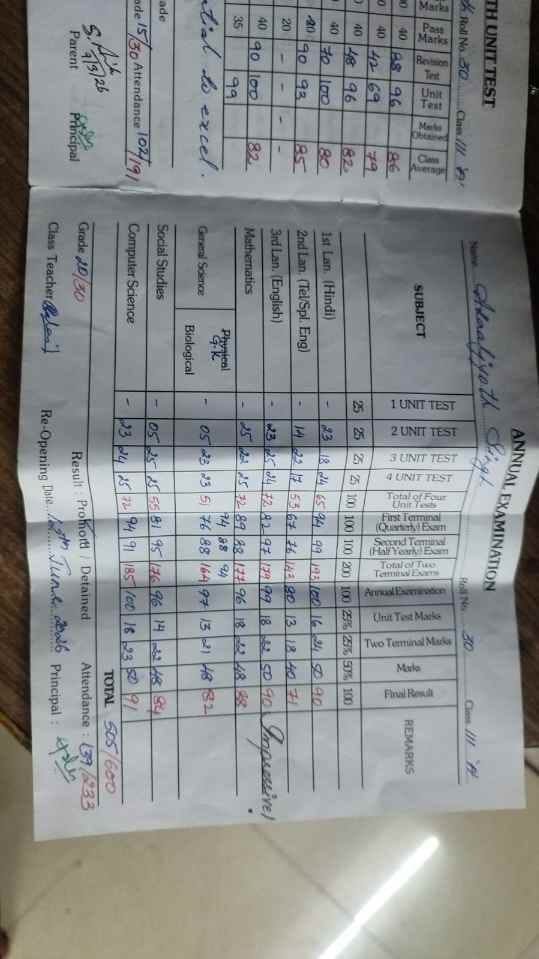 TH UNIT TEST
Roll No. 30 Class III 'A'
Marks
Pass Marks
Revision Test
Unit Test
Marks Obtained
Class Average
40 88 96 86
40 42 69 79
40 48 96 82
40 70 100 80
40 90 93 85
20 - - -
40 90 100 82
35 99
to excel.
ade
ade 15/30 Attendance 102/191
9/3/26
Parent Principal
ANNUAL EXAMINATION
Name Akaaljyoth Singh Roll No. 30 Class III 'A'
SUBJECT
1 UNIT TEST
2 UNIT TEST
3 UNIT TEST
4 UNIT TEST
Total of Four Unit Tests
First Terminal (Quarterly) Exam
Second Terminal (Half Yearly) Exam
Total of Two Terminal Exams
Annual Examination
Unit Test Marks
Two Terminal Marks
Marks
Final Result
REMARKS
25 25 25 25 100 100 100 200 100 25% 25% 50% 100
1st Lan. (Hindi) - 23 18 24 65 94 99 193 100 16 24 50 90
2nd Lan. (Tel/Spl. Eng) - 14 22 17 53 67 76 143 80 13 18 40 71
3rd Lan. (English) - 23 25 24 72 82 97 179 99 18 22 50 90 Impressive!
Mathematics - 25 22 25 72 89 88 177 96 18 22 48 88
General Science
Physical G.K 94 88 94
Biological - 05 23 23 51 76 88 164 97 13 21 48 82
Social Studies - 05 25 25 55 81 95 176 96 14 22 48 84
Computer Science - 23 24 25 72 94 91 185 100 18 23 50 91
TOTAL 505/600
Grade 20/30 Result : Promoted / Detained Attendance : 139/233
Class Teacher Re-Opening Date 12th June 2026 Principal :